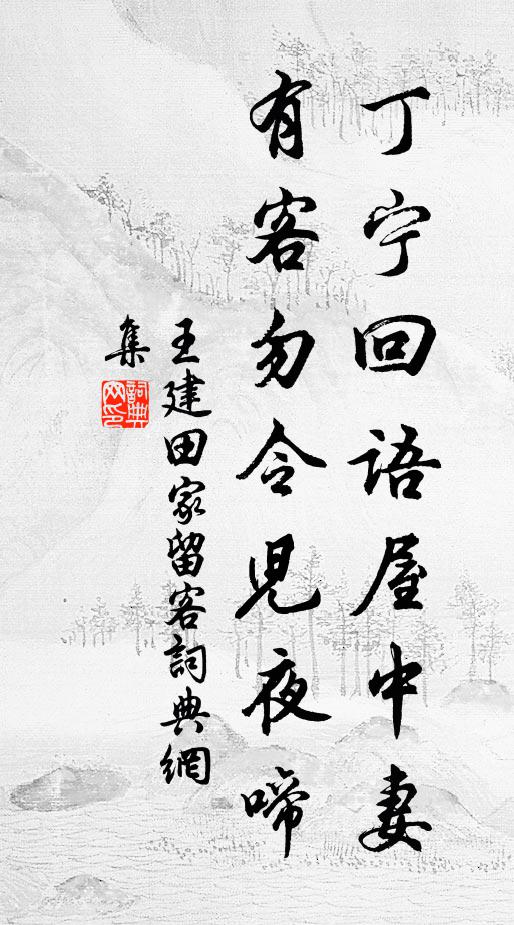 丁宁回語屋中妻
有客勿令児夜啼
王建田家留客詞典網
集
詞典網印